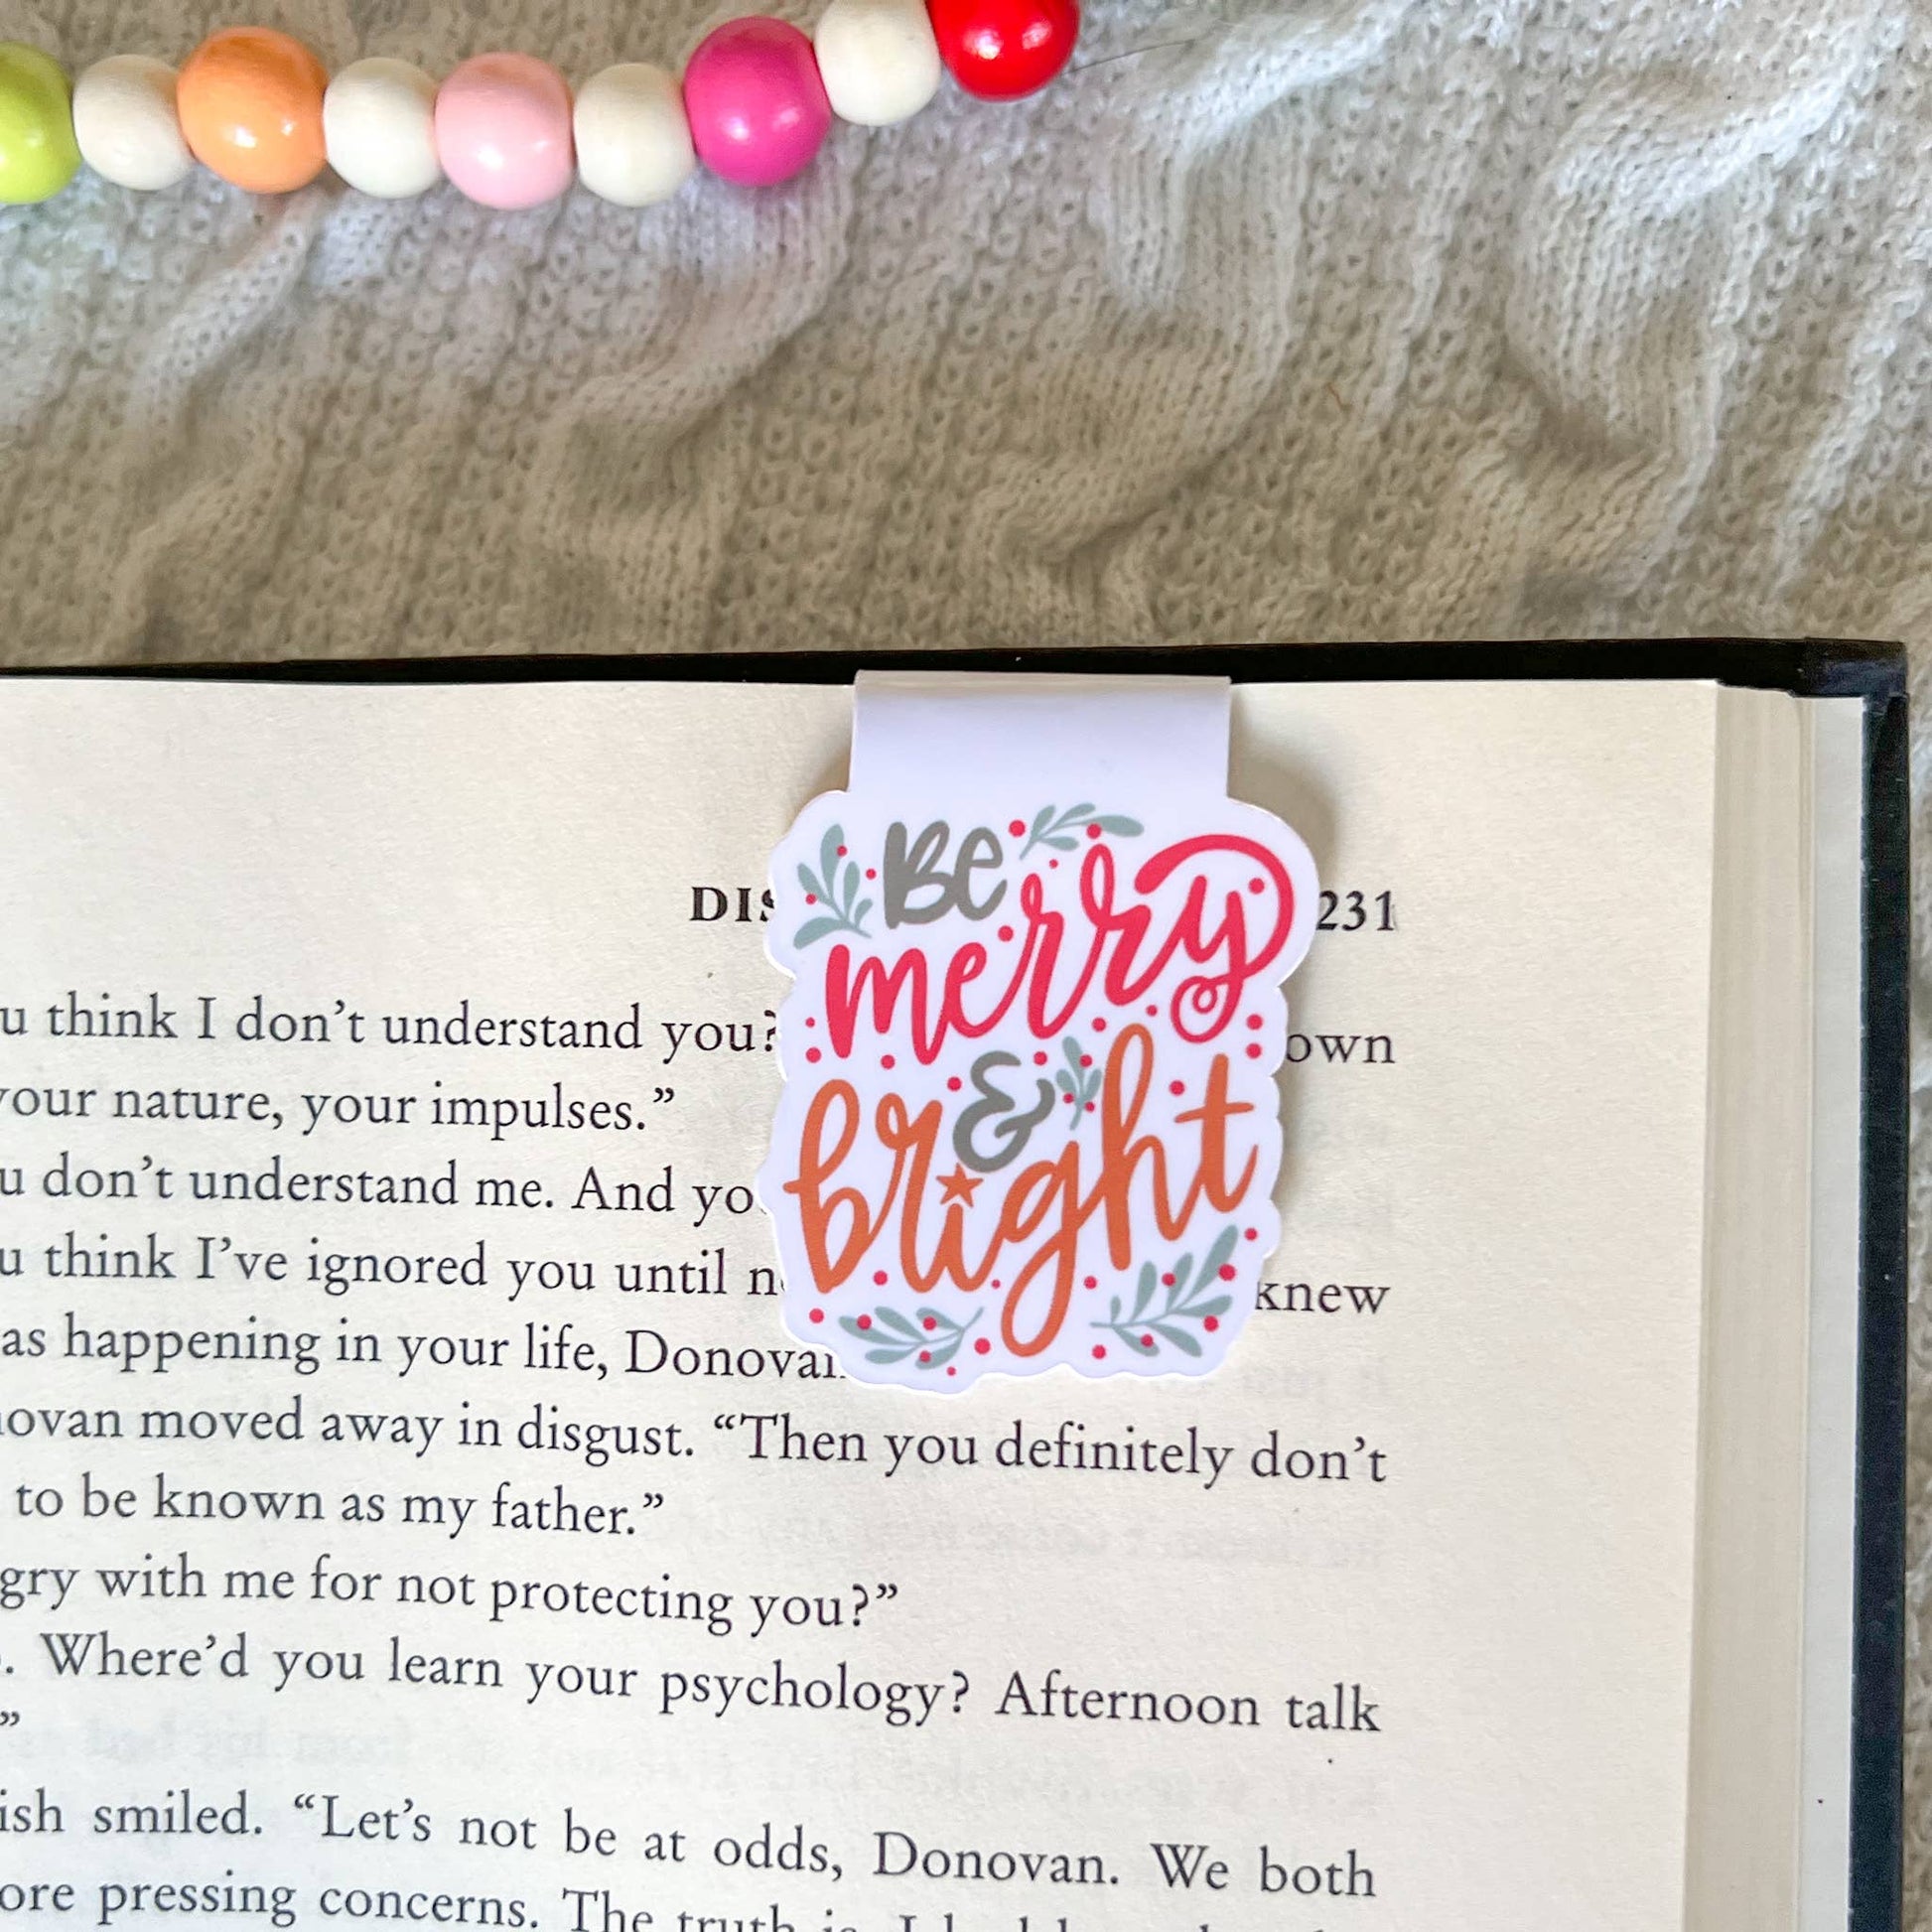 231
Be
merry
&
bright
think I don’t understand you? own
your nature, your impulses.”
don’t understand me. And
think I’ve ignored you until knew
happening in your life, Donovan
moved away in disgust. “Then you definitely don’t
to be known as my father.”
with me for not protecting you?”
Where’d you learn your psychology? Afternoon talk
”
smiled. “Let’s not be at odds, Donovan. We both
pressing concerns. The truth is, I